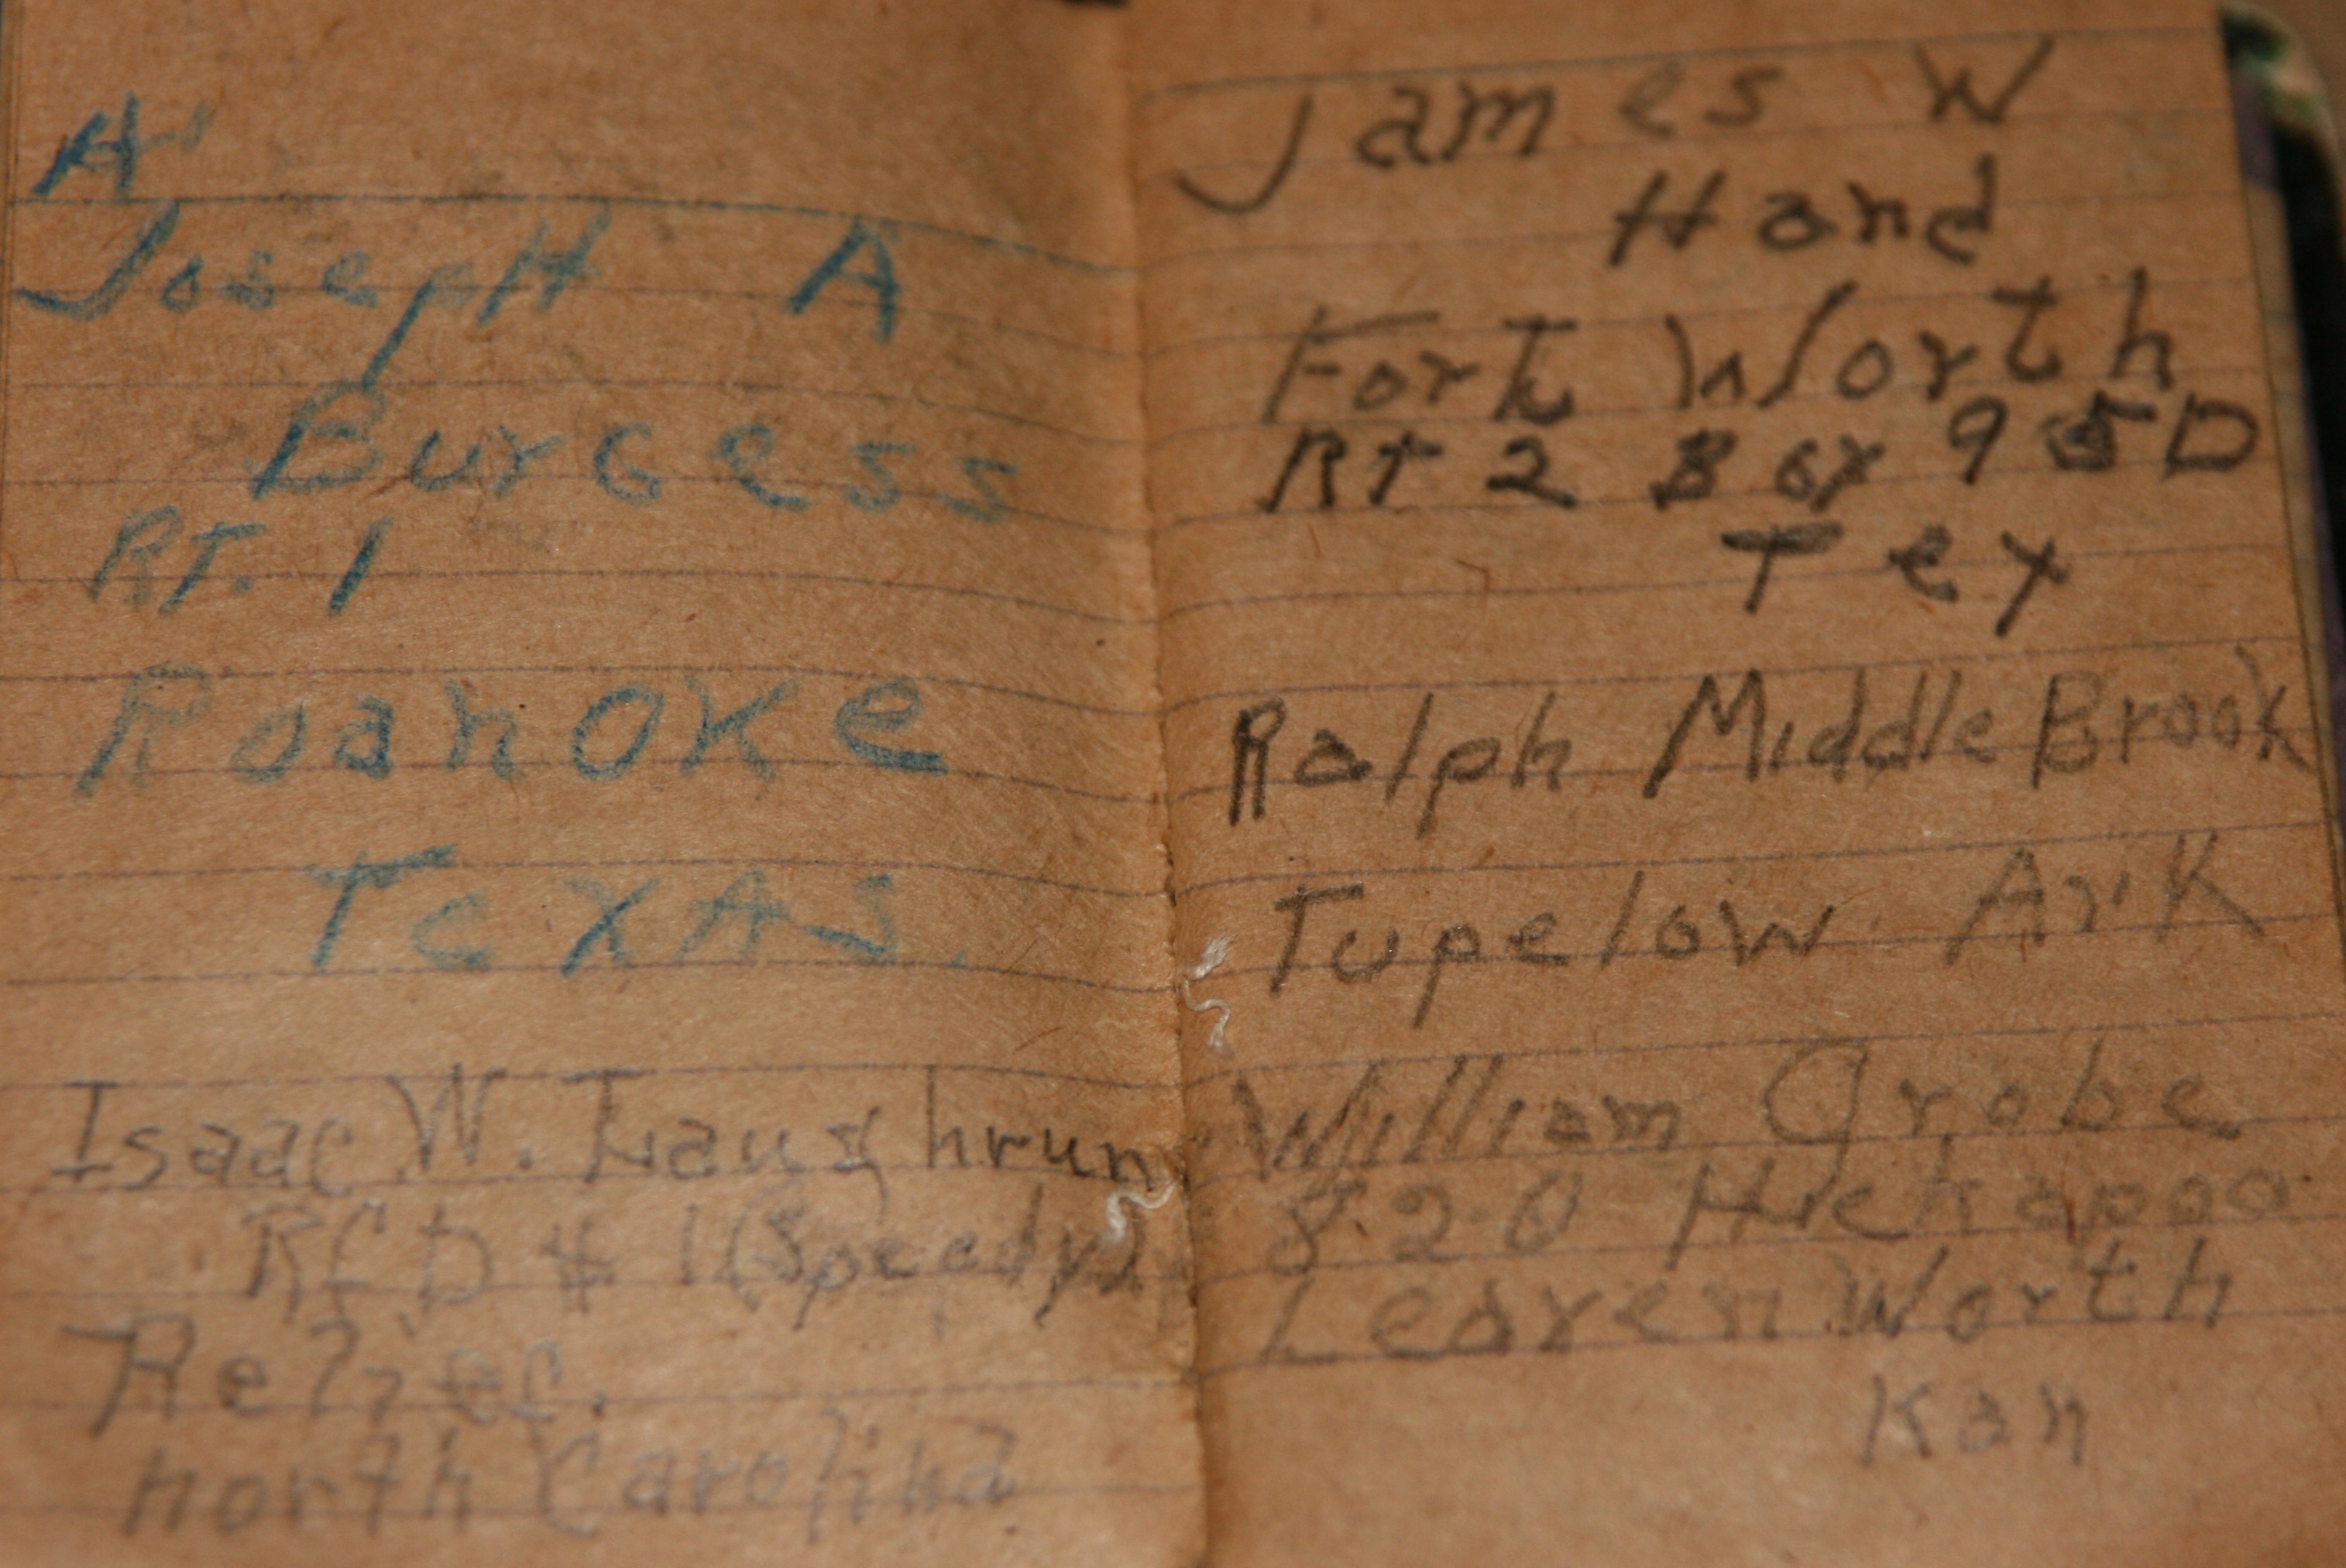 A
Joseph A
Burgess
RT. 1
Roanoke
Texas.
Isaac W. Laughrun
RFD # 1 (Speedy)
Relief.
north Carolina
James W
Hand
Fort Worth
RT 2 Box 95D
Tex
Ralph MiddleBrook
Tupelow Ark
William Grobe
820 Kickapoo
LeavenWorth
Kan